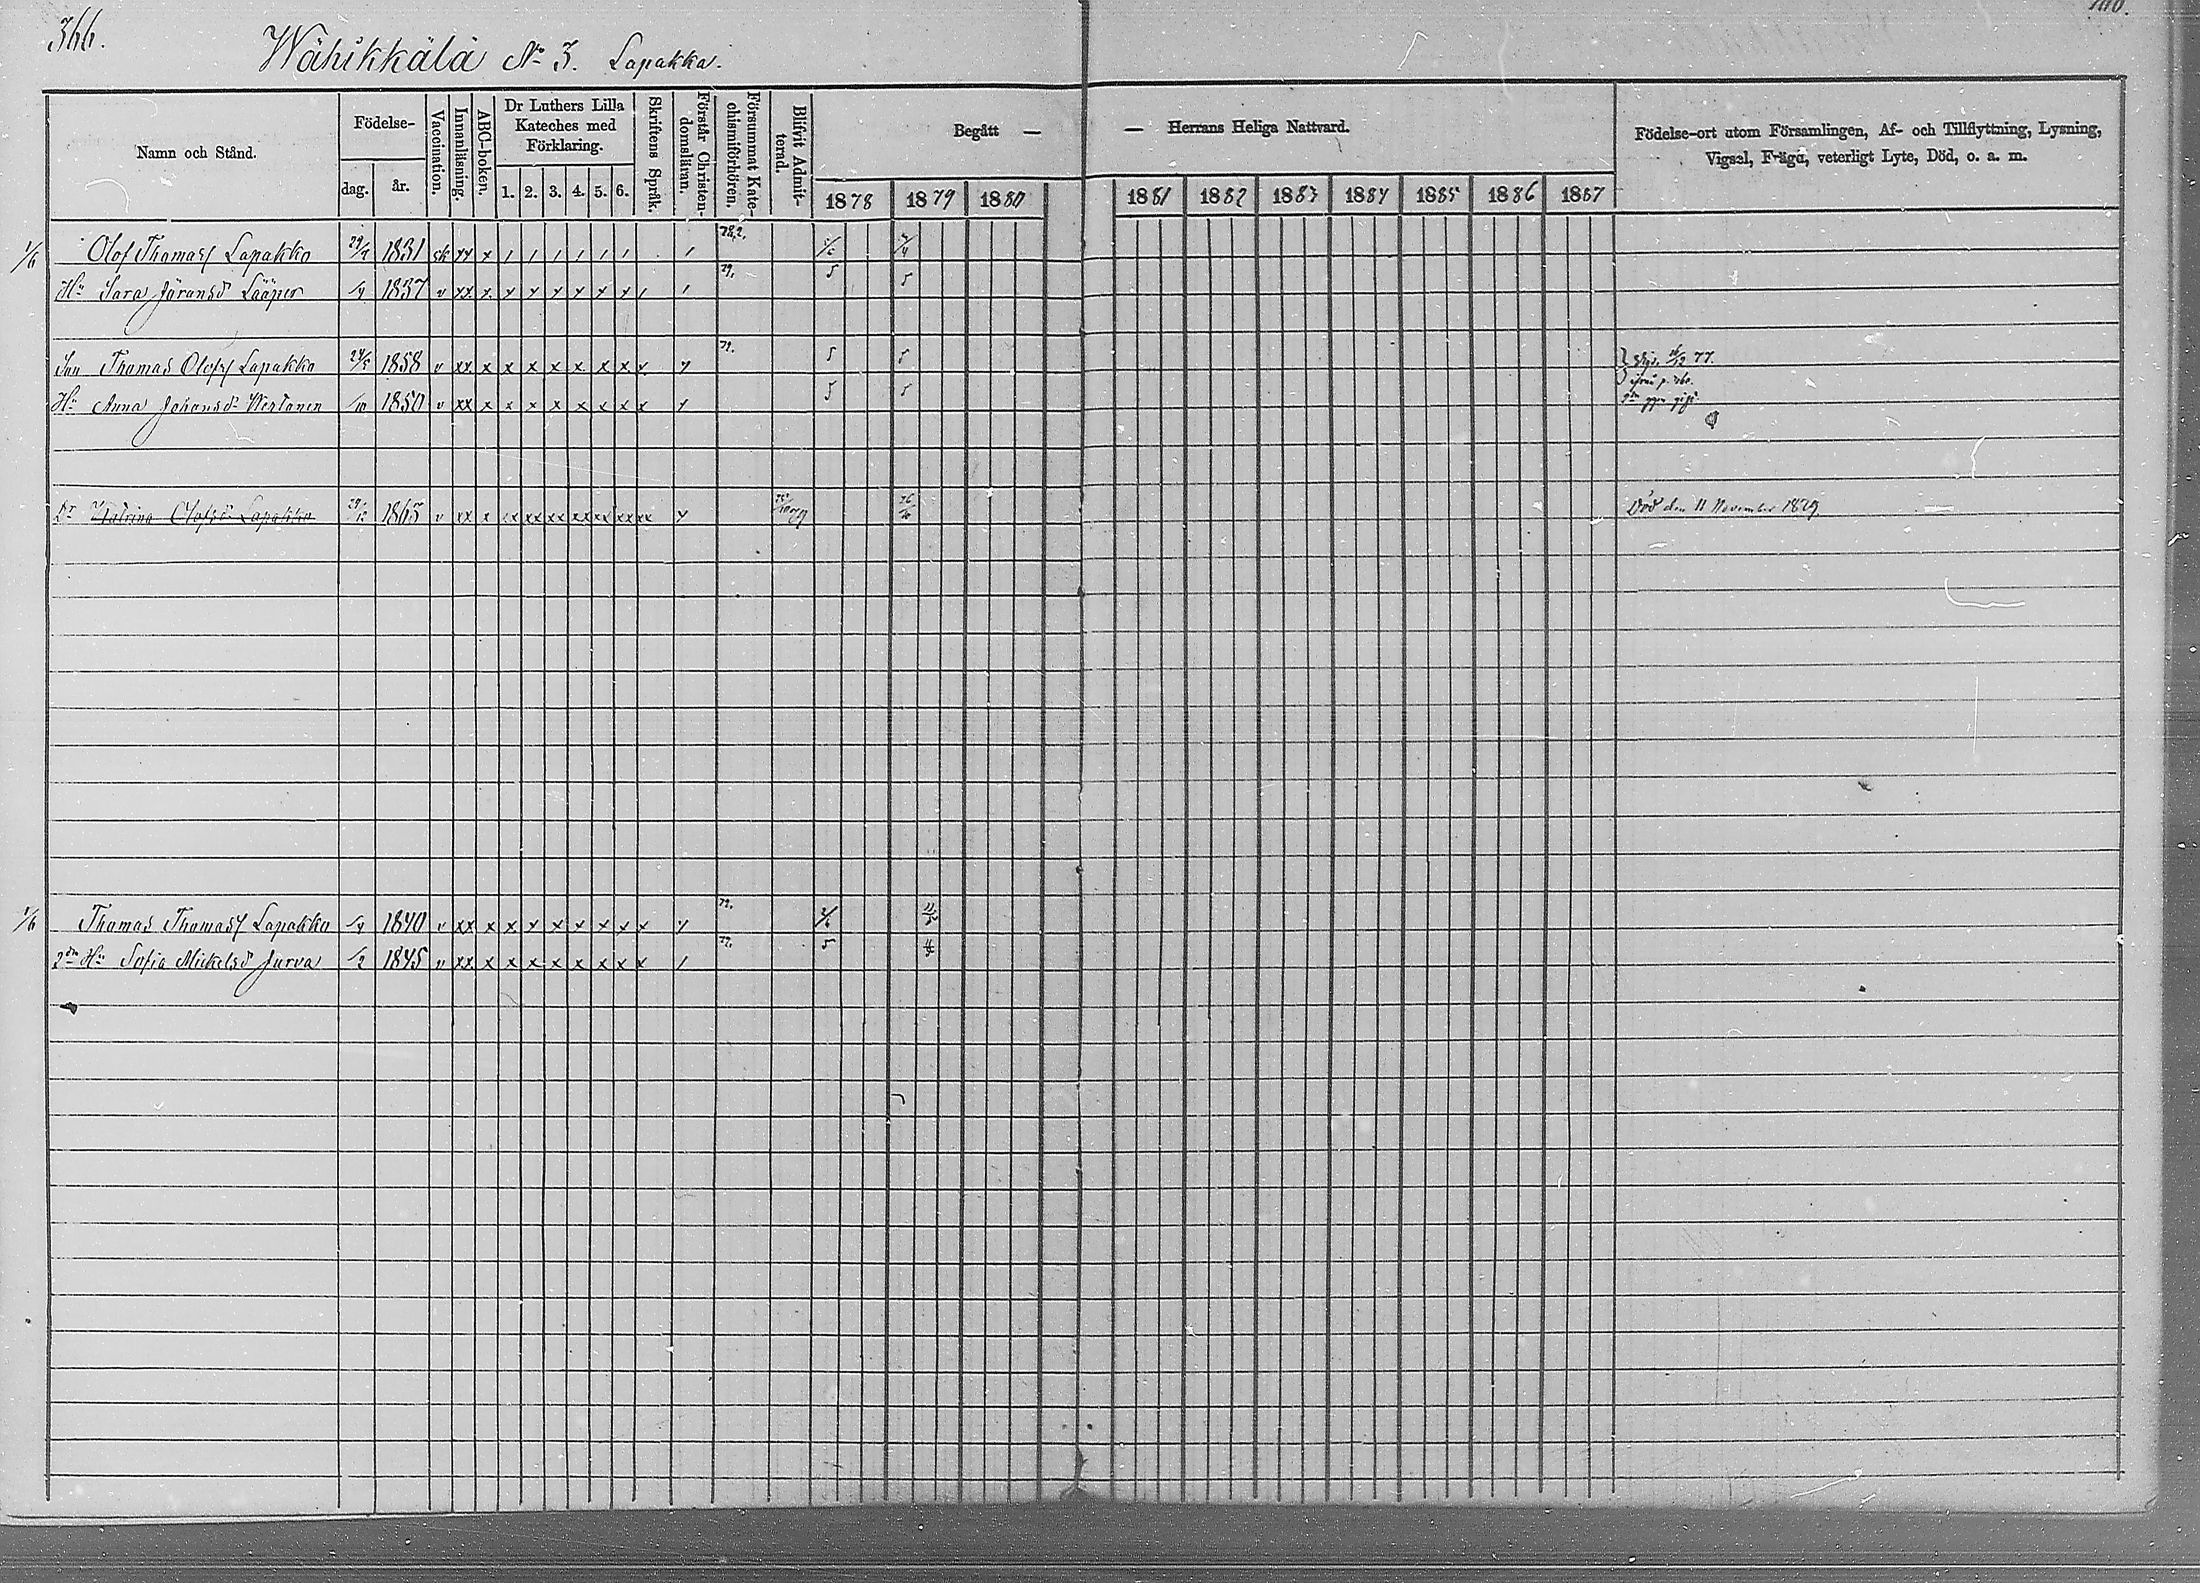 366.
Wähikkälä No 3. Lapakka.
Namn och Stånd.
Födelse-
dag.
år.
Vaccination.
Innanläsning.
ABC-boken.
Dr Luthers Lilla
Kateches med
Förklaring.
1. 2. 3. 4. 5. 6.
Skriftens Språk.
Förstår Christen-
domsläran.
Försummat Kate-
chismiförhören.
Blifvit Admit-
terad.
Begått —
— Herrans Heliga Nattvard.
1878 1879 1880 1881 1882 1883 1884 1885 1886 1887
Födelse-ort utom Församlingen, Af- och Tillflyttning, Lysning,
Vigsel, Frägd, veterligt Lyte, Död, o. a. m.
1/6 Olof Thomass Lapakko 1831 x / / / / / / /
Hu Sara Göransdr Lääperi 1837 v xx x x x x x x x / / 79. 5
Son Thomas Olofss Lapakko 24/5 1858 v xx x x x x x x x x 79. 5 5
Hu Anna Johansdr Wertanen /10 1850 v xx x x x x x x x x 5 5
Dr Katrina Olofsdr Lapakko 1865 v xx x xx xx xx xx xx xx xx Död den 11 November 1879
1/6 Thomas Thomass Lapakko 1840 v xx x x x x x x x x 79.
2dra Hu Sofia Mickelsdr Jurva /2 1845 v xx x x x x x x x x / 5